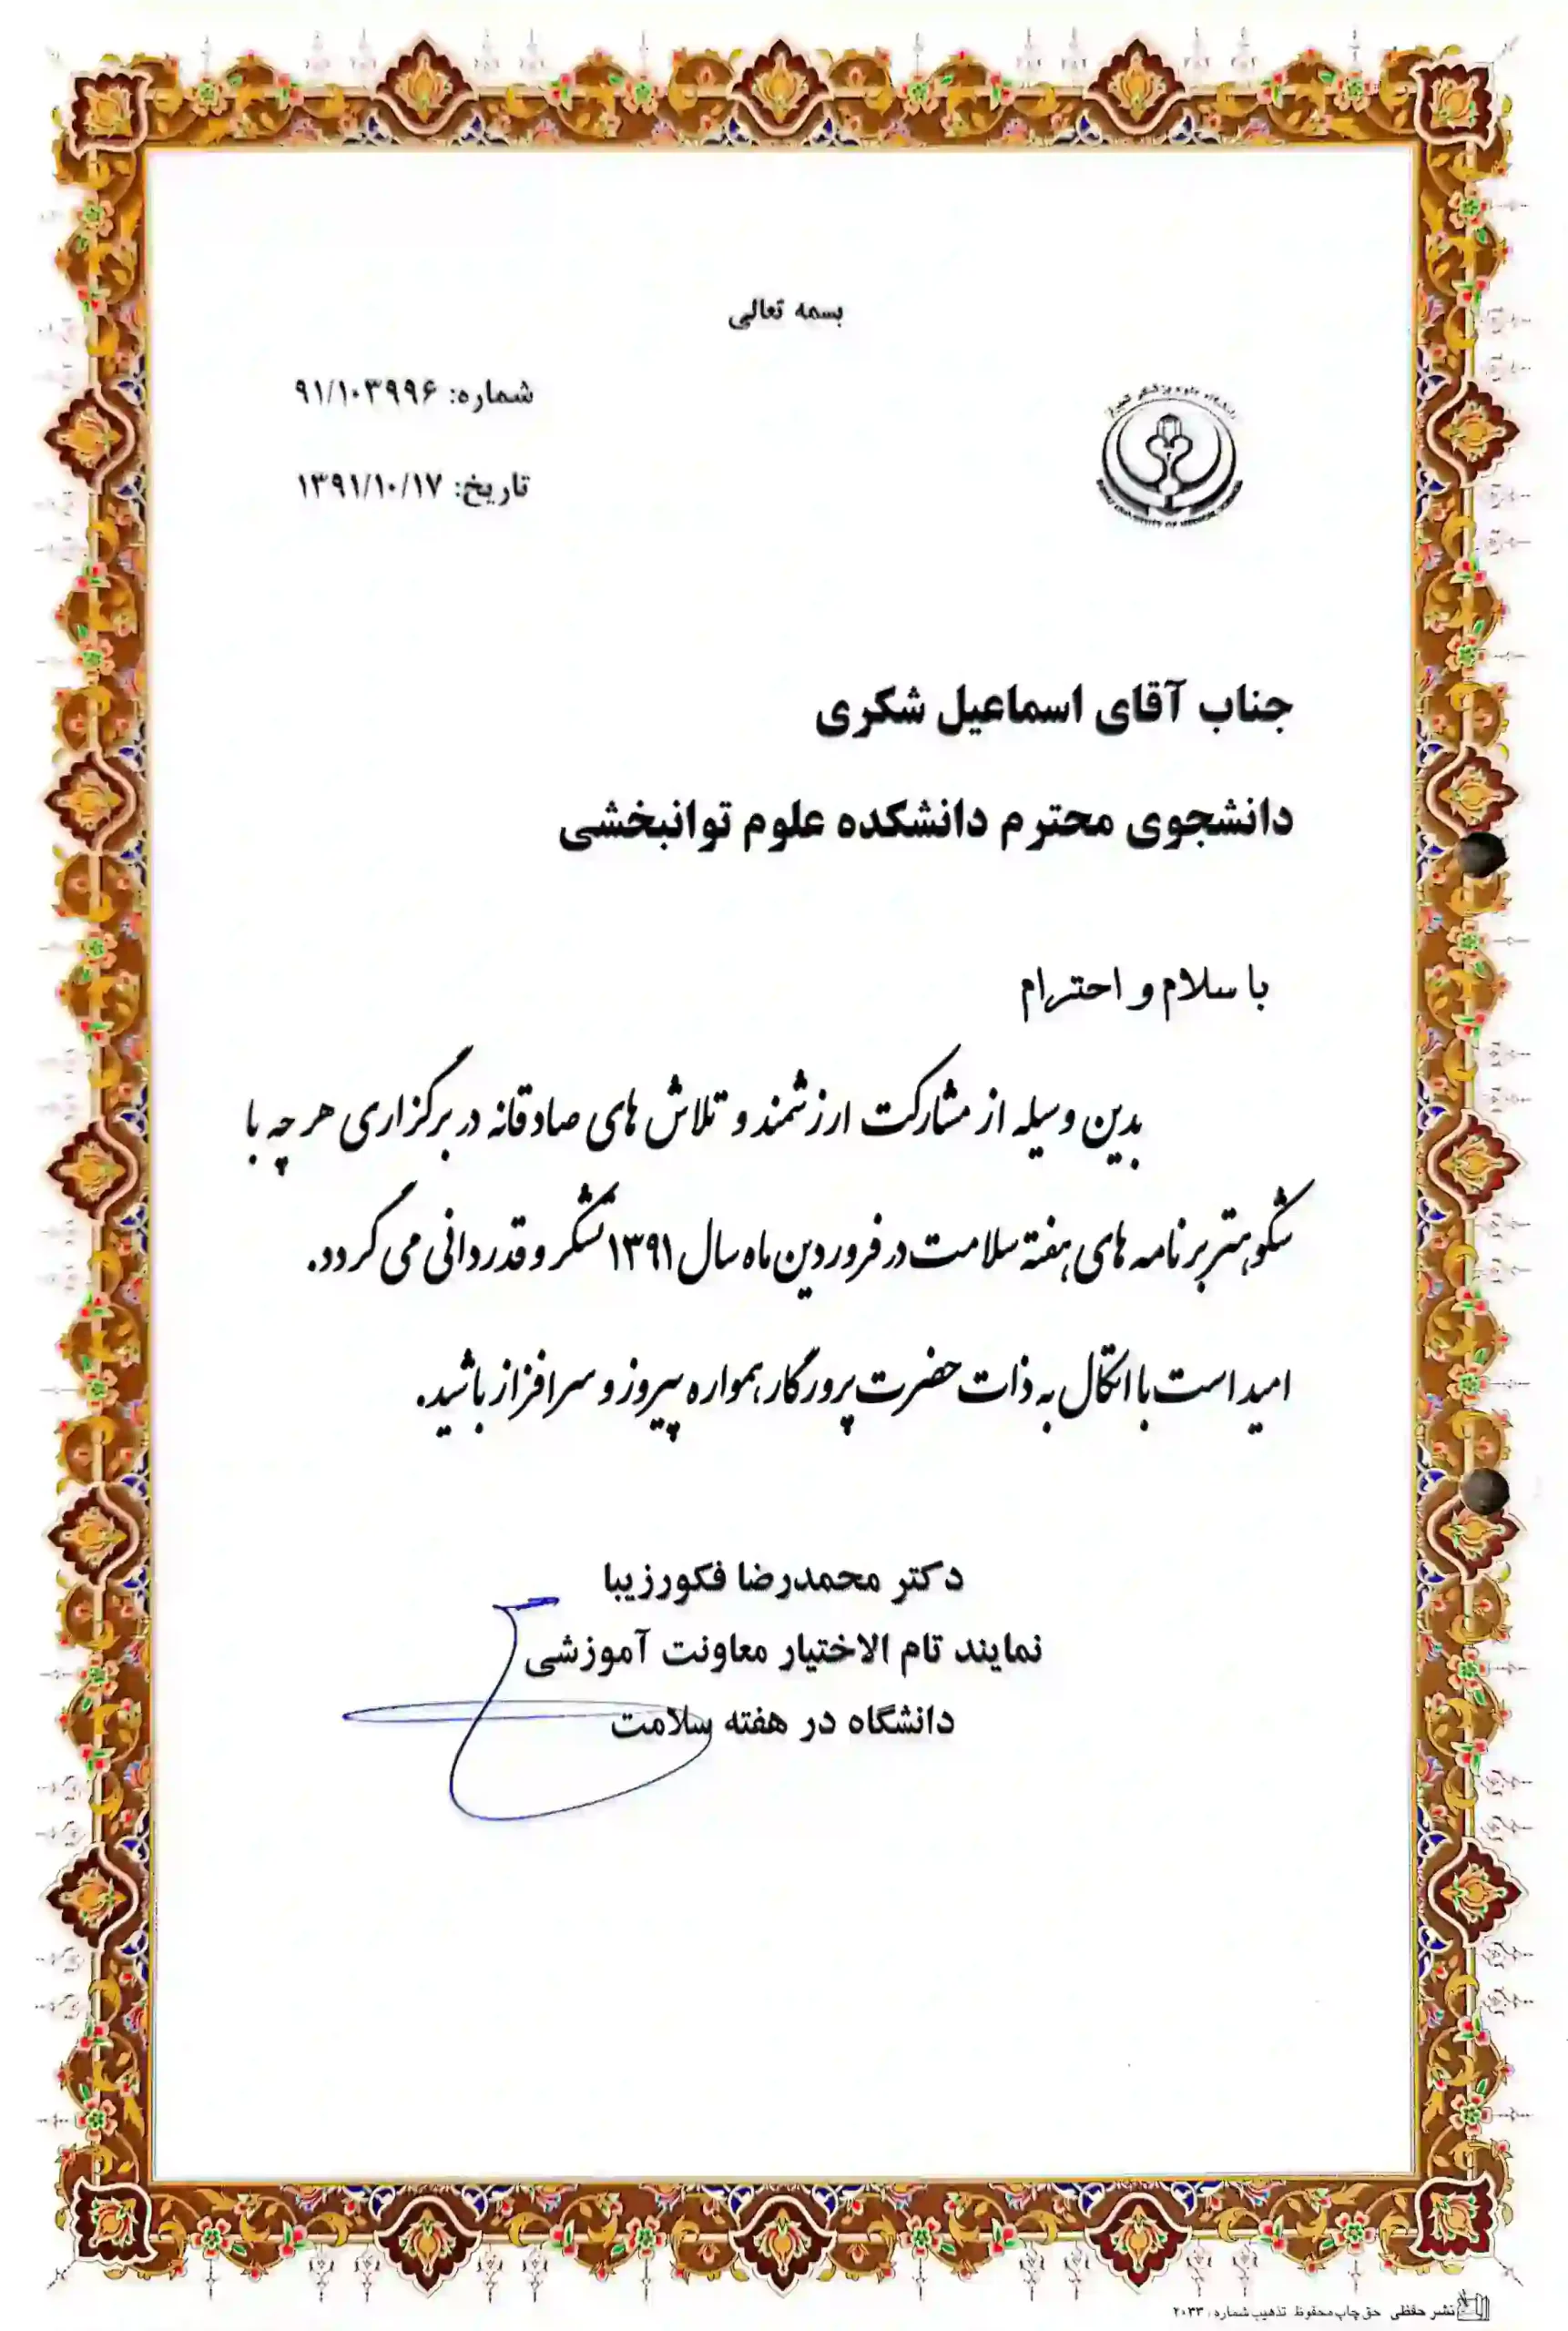 بسمه تعالی
شماره: ۹۱/۱۰۳۹۹۶
تاریخ: ۱۳۹۱/۱۰/۱۷
جناب آقای اسماعیل شکری
دانشجوی محترم دانشکده علوم توانبخشی
با سلام و احترام
بدین وسیله از مشارکت ارزشمند و تلاش های صادقانه در برگزاری هر چه با
شکوهتر برنامه های هفته سلامت در فروردین ماه سال ۱۳۹۱ تشکر و قدردانی می گردد.
امید است با اتکال به ذات حضرت پرورگار همواره پیروز و سرافراز باشید.
دکتر محمدرضا فکورزیبا
نمایند تام الاختیار معاونت آموزشی
دانشگاه در هفته سلامت
نشر حفظی حق چاپ محفوظ تذهیب شماره: ۲۰۳۳